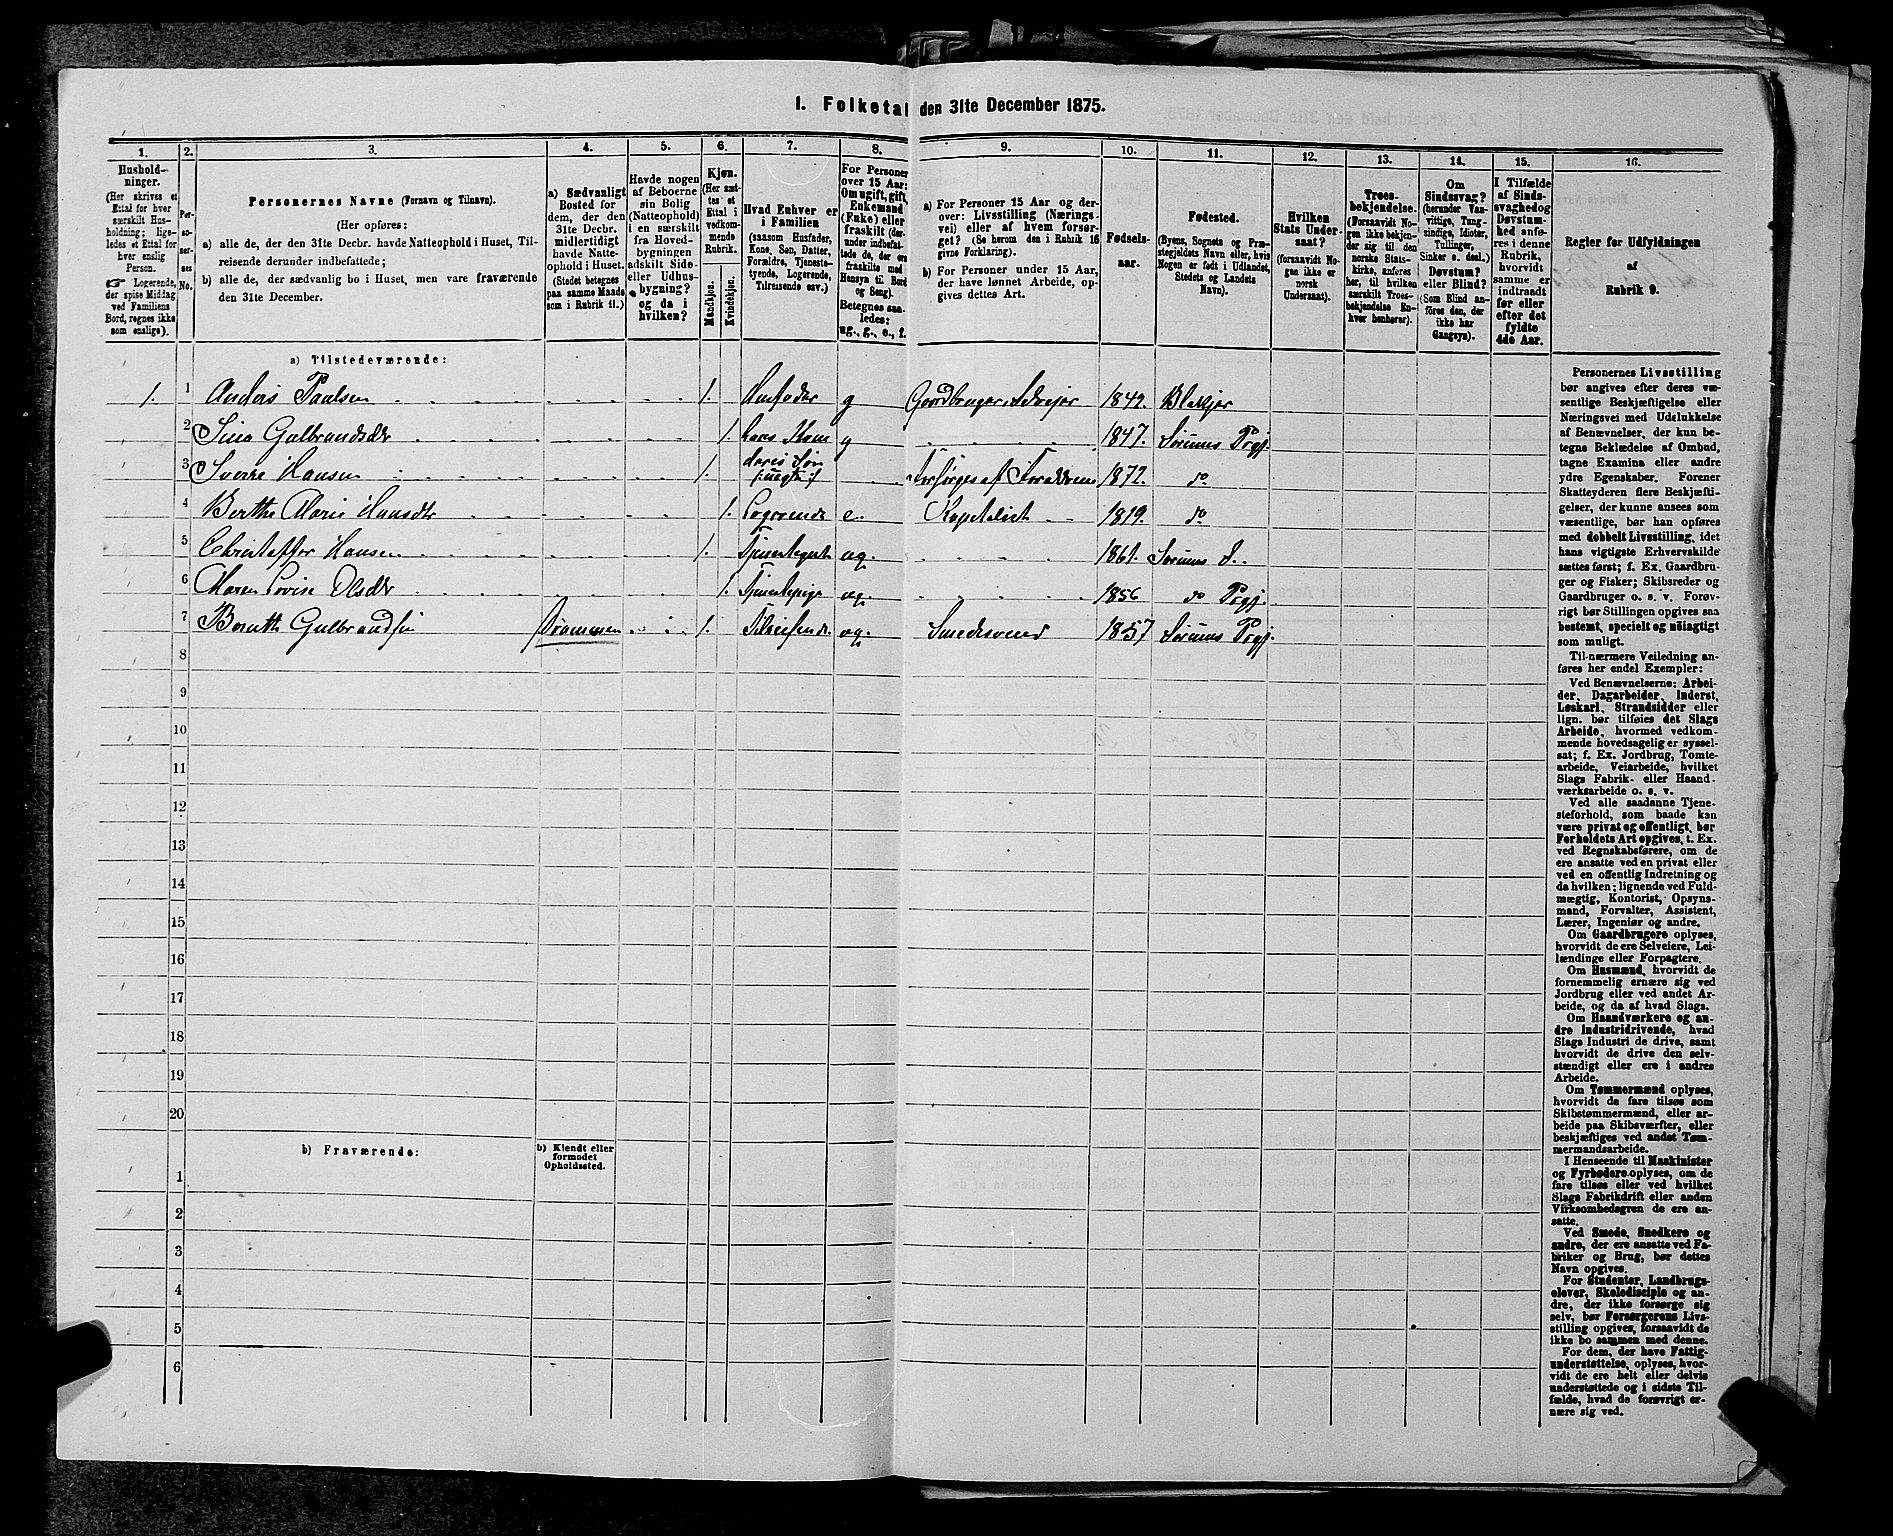 1. Folketal den 31te December 1875.
1. 2. 3. 4. 5. 6. 7. 8. 9. 10. 11. 12. 13. 14. 15. 16.
Hushold-
ninger.
(Her skrives et
Ettal for hver
særskilt Hus-
holdning; lige-
ledes et Ettal for
hver enslig
Person.
☞ Logerende,
der spise Middag
ved Familiens
Bord, regnes ikke
som enslige).
Per-
so-
ner-
nes
No.
Personernes Navne (Fornavn og Tilnavn).
(Her opføres:
a) alle de, der den 31te Decbr. havde Natteophold i Huset, Til-
reisende derunder indbefattede;
b) alle de, der sædvanlig bo i Huset, men vare fraværende
den 31te December.
a) Sædvanligt
Bosted for
dem, der den
31te Decbr.
midlertidigt
havde Natte-
ophold i Huset.
(Stedet betegnes
paa samme Maade
som i Rubrik 11.)
Havde nogen
af Beboerne
sin Bolig
(Natteophold)
i en særskilt
fra Hoved-
bygningen
adskilt Side-
eller Udhus-
bygning?
og da i
hvilken?
Kjøn.
(Her sæt-
tes et
Ettal i
vedkom-
mende
Rubrik.
Mandkjøn.
Kvindekjøn.
Hvad Enhver er
i Familien
(saasom Husfader,
Kone, Søn, Datter,
Forældre, Tjeneste-
tyende, Logerende,
Tilreisende osv.)
For Personer
over 15 Aar:
Om ugift, gift,
Enkemand
(Enke) eller
fraskilt (der-
under indbefat-
tede de, der ere
fraskilte med
Hensyn til Bord
og Seng).
Betegnes saa-
ledes:
ug., g., e., f.
a) For Personer 15 Aar og der-
over: Livsstilling (Nærings-
vei) eller af hvem forsør-
get? (Se herom den i Rubrik 16
givne Forklaring).
b) For Personer under 15 Aar,
der have lønnet Arbeide, op-
gives dettes Art.
Fødsels-
aar.
Fødested.
(Byens, Sognets og Præ-
stegjeldets Navn eller, hvis
Nogen er født i Udlandet,
Stedets og Landets
Navn).
Hvilken
Stats Under-
saat?
(forsaavidt No-
gen ikke er
norsk
Undersaat).
Troes-
bekjendelse.
(Forsaavidt No-
gen ikke bekjen-
der sig til den
norske Stats-
kirke, anføres
her, til hvilken
særskilt Troes-
bekjendelse En-
hver henhører).
Om
Sindssvag?
(herunder Van-
vittige, Tung-
sindige, Idioter,
Tullinger,
Sinker o. desl.)
Døvstum?
eller Blind?
(Som Blind an-
føres den, der
ikke har
Gangsyn).
I Tilfælde
af Sinds-
svaghed og
Døvstum-
hed anfø-
res i denne
Rubrik,
hvorvidt
samme er
indtraadt
før eller
efter det
fyldte
4de Aar.
Regler for Udfyldningen
af
Rubrik 9.
a) Tilstedeværende:
1. 1 Anders Paulsen 1. Husfader g Gaardbruger, Selveier 1842. Blakjer
2 Sina Gulbrandsdtr 1. hans Kone g 1847. Sørums Prgj.
3 Sverre Hansen 1. deres Søn Forsørges af Forældrene 1872. do
4 Berthe Marie Hansdtr 1. Logerende e. Kapitalist 1819. do
5 Christoffer Hansen 1. Tjenestegut ug. 1861. Sørums
6 Maren Lovise Olsdtr 1. Tjenestepige ug. 1856 do Prgj.
7 Berntt Gulbrandsen Drammen 1. Tilreisende ug. Smedesvend 1857 Sørums Prgj.
8
9
10
11
12
13
14
15
16
17
18
19
20
b) Fraværende:
b) Kjendt eller
formodet
Opholdssted.
1
2
3
4
5
6
Personernes Livsstilling
bør angives efter deres væ-
sentlige Beskjæftigelse eller
Næringsvei med Udelukkelse
af Benævnelser, der kun be-
tegne Beklædelse af Ombud,
tagne Examina eller andre
ydre Egenskaber. Forener
Skatteyderen flere Beskjæfti-
gelser, der kunne ansees som
væsentlige, bør han opføres
med dobbelt Livsstilling, idet
hans vigtigste Erhvervskilde
sættes først; f. Ex. Gaardbru-
ger og Fisker; Skibsreder og
Gaardbruger o. s. v. Forøv-
rigt bør Stillingen opgives saa
bestemt, specielt og nöiagtigt
som muligt.
Til nærmere Veiledning an-
føres her endel Exempler:
Ved Benævnelserne: Arbei-
der, Dagarbeider, Inderst,
Løskarl, Strandsidder eller
lign. bør tilføies det Slags
Arbeide, hvormed vedkom-
mende hovedsagelig er syssel-
sat; f. Ex. Jordbrug, Tomte-
arbeide, Veiarbeide, hvilket
Slags Fabrik- eller Haand-
værksarbeide o. s. v.
Ved alle saadanne Tjene-
steforhold, som baade kan
være privat og offentligt, bør
Forholdets Art opgives, t. Ex.
ved Regnskabsførere, om de
ere ansatte ved en privat eller
ved en offentlig Indretning og
da hvilken; lignende ved Fuld-
mægtig, Kontorist, Opsyns-
mand, Forvalter, Assistent,
Lærer, Ingeniør og andre.
Om Gaardbrugere oplyses,
hvorvidt de ere Selveiere, Lei-
lændinge eller Forpagtere.
Om Husmænd, hvorvidt de
fornemmelig ernære sig ved
Jordbrug eller ved andet Ar-
beide, og da af hvad Slags.
Om Haandværkere og an-
dre Industridrivende, hvad
Slags Industri de drive, samt
hvorvidt de drive den selv-
stændigt eller ere i andres
Arbeide.
Om Tømmermænd oplyses,
hvorvidt de fare tilsøs som
Skibstømmermænd, eller ar-
beide paa Skibsværfter, eller
beskjæftiges ved andet Tøm-
mermandsarbeide.
I Henseende til Maskinister
og Fyrbødere oplyses, om de
fare tilsøs eller ved hvilket
Slags Fabrikdrift eller anden
Virksomhedsgren de ere an-
satte.
Ved Smede, Snedkere og
andre, der ere ansatte ved Fa-
briker og Brug, bør dettes
Navn opgives.
For Studenter, Landbrugs-
elever, Skoledisciple og an-
dre, der ikke forsørge sig
selv, bør Forsørgerens Livs-
stilling opgives, forsaavidt de
ikke bo sammen med denne.
For dem, der have Fattig-
understøttelse, oplyses, hvor-
vidt de ere helt eller delvis
understøttede og i sidste Til-
fælde, hvad de forøvrigt er-
nære sig ved.